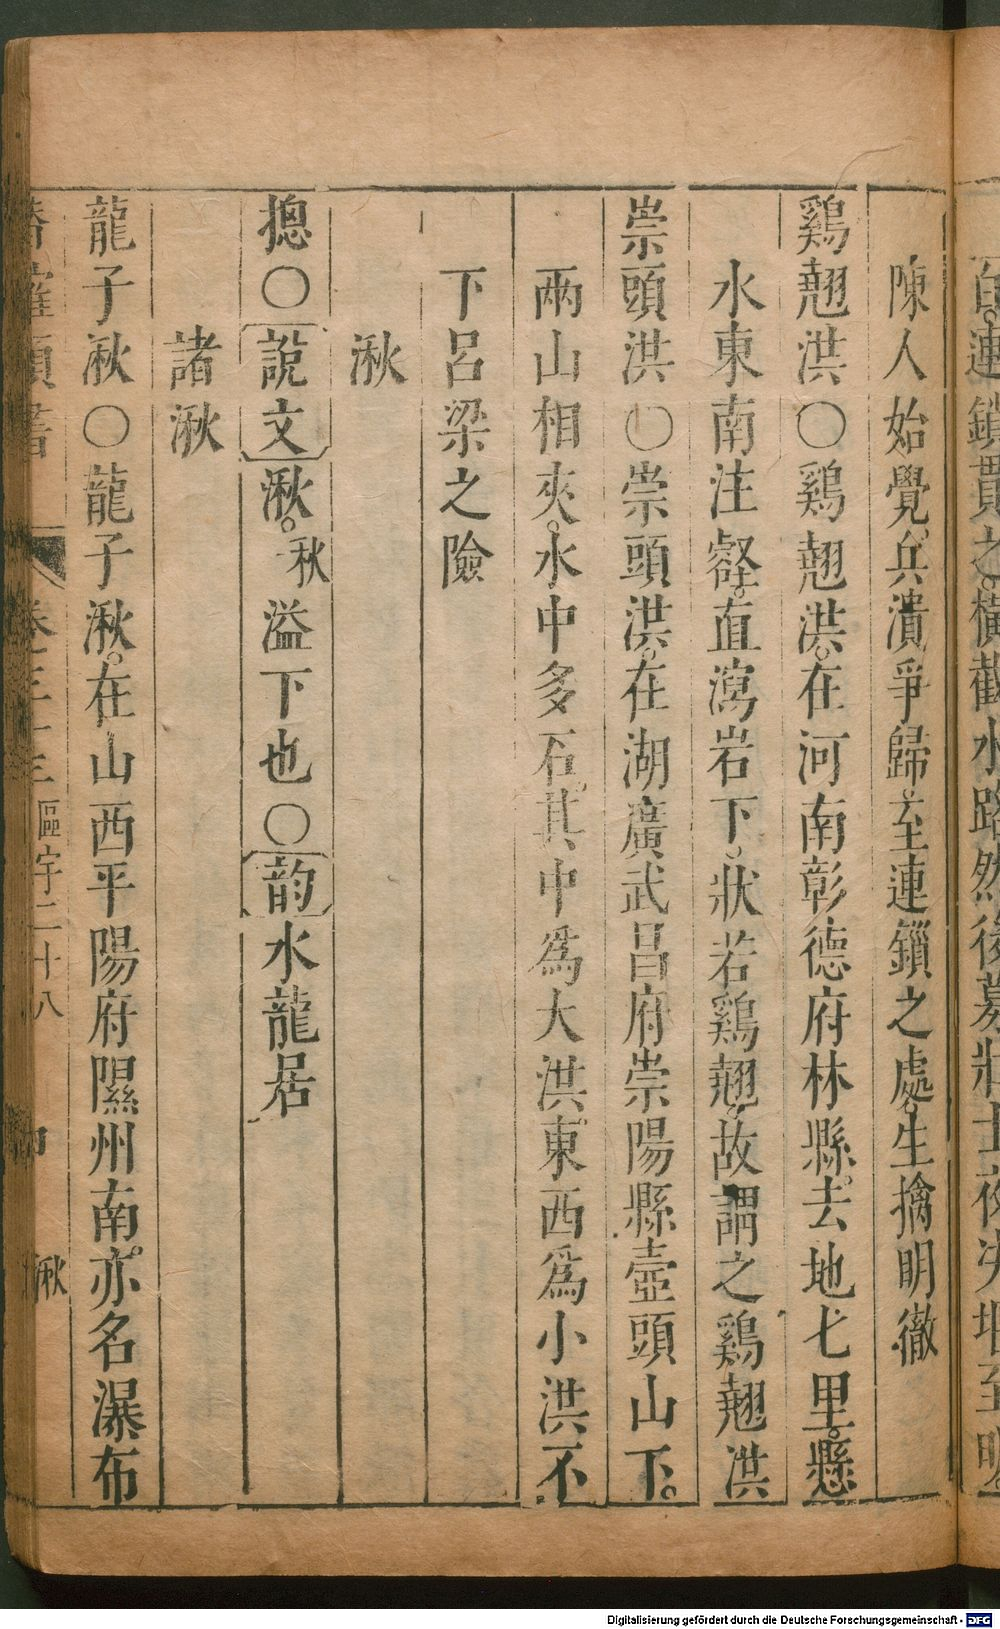 百。連鎖貫之。橫截水路。然後募壯士夜決堰。至明。
陳人始覺。兵潰爭歸。至連鎖之處。生擒明徹
鷄翹洪○鷄翹洪。在河南彰德府林縣。去地七里。懸
水東南注壑。直瀉岩下。狀若鷄翹。故謂之鷄翹洪
崇頭洪○崇頭洪。在湖廣武昌府崇陽縣壺頭山下。
兩山相夾。水中多石。其中為大洪。東西為小洪。不
下呂梁之險
湫
摠○說文湫。秋溢下也○韵水龍居
諸湫
龍子湫○龍子湫。在山西平陽府隰州南。亦名瀑布
卷三十三 區宇二十八 湫
Digitalisierung gefördert durch die Deutsche Forschungsgemeinschaft - DFG